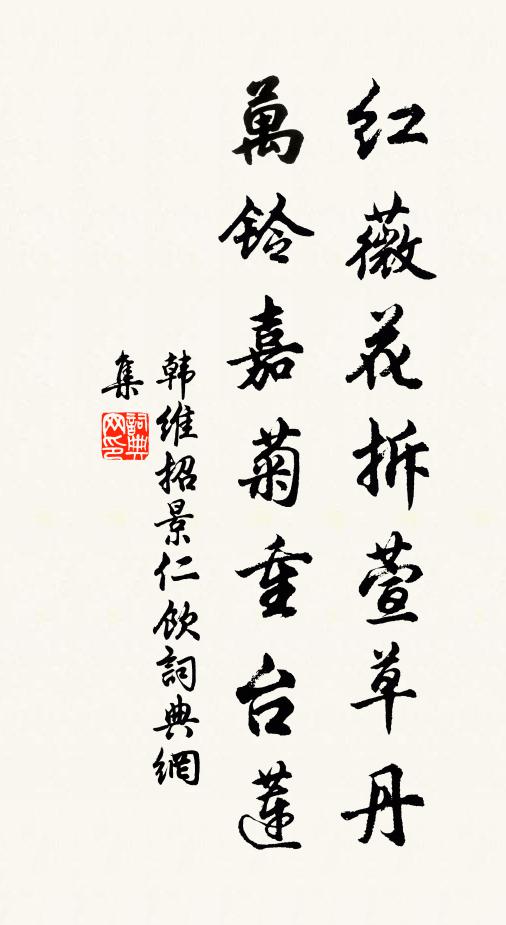 红薇花拆萱草丹
萬鈴嘉菊重台蓮
韩維招景仁飲詞典網
集
詞典网印